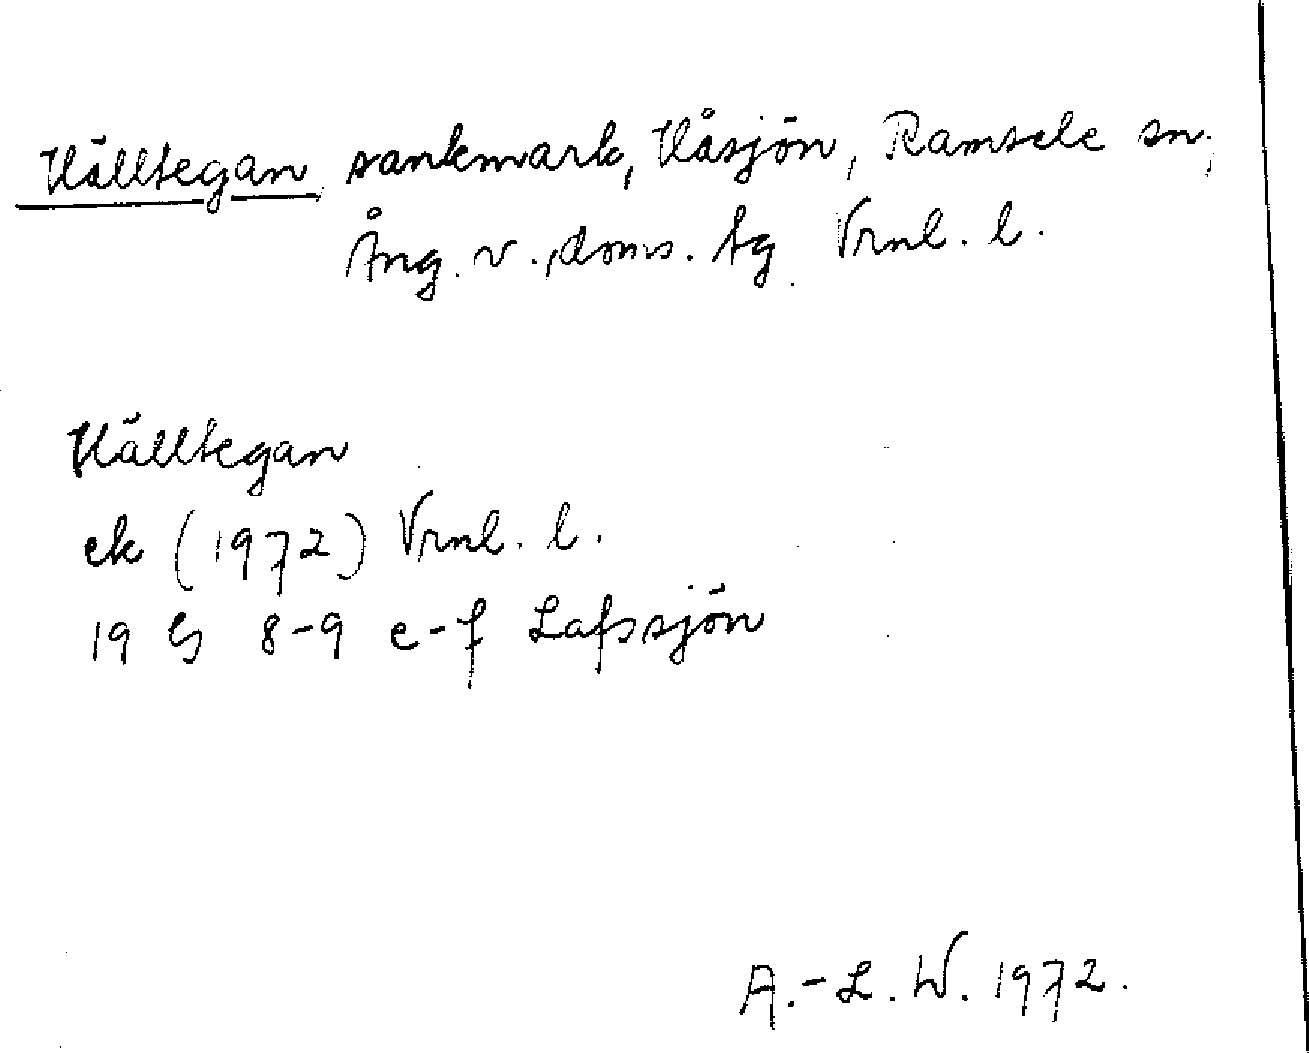 Källtegan, sankmark, Kåsjön, Ramsele sn,
Ång. v., doms. tg Vrnl. l.
Källtegan
ek (1972) Vrnl. l.
19 G 8-9 e-f Lafssjön
A.-L. W. 1972.